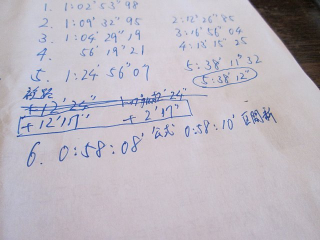 1. 1:02'53"98
1:09'32"95 2:12'26"85
3. 1:04'29"19 3:16'56"04
4. 56'19"21 4:13'15"25
5. 1:24'56"07 5:38'11"32
5:38'12"
+12'24"
+12'17" +2'17"
6. 0:58:08' 公式 0:58:10' 区間新